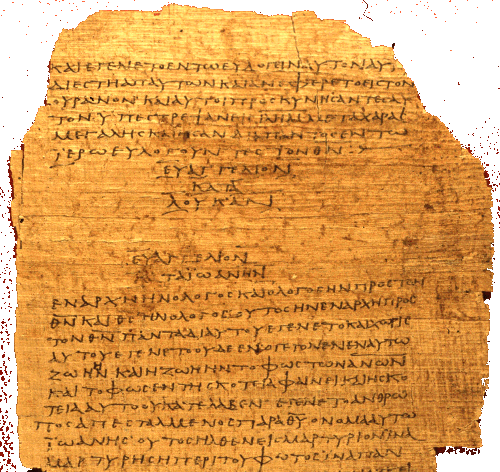 ΚΑΙΕΓΕΝΕΤΟΕΝΤΩΕΥΛΟΓΕΙΝΑΥΤΟΝΑΥ
ΔΙΕϹΤΗΑΠΑΥΤΩΝΚΑΙΑΝΕΦΕΡΕΤΟΕΙϹΤΟΝ
ΟΥΡΑΝΟΝΚΑΙΑΥΤΟΙΠΡΟϹΚΥΝΗϹΑΝΤΕϹΑΥ
ΤΟΝΥΠΕϹΤΡΕΨΑΝΕΙϹΙΗΛΗΜΜΕΤΑΧΑΡΑϹ
ΜΕΓΑΛΗϹΚΑΙΗϹΑΝΔΙΑΠΑΝΤΟϹΕΝΤΩ
ΙΕΡΩΕΥΛΟΓΟΥΝΤΕϹΤΟΝΘ̅Ν̅
ΕΥΑΓΓΕΛΙΟΝ
ΚΑΤΑ
ΛΟΥΚΑΝ
ΕΥΑΓΓΕΛΙΟΝ
ΚΑΤΑΪΩΑΝΗΝ
ΕΝΑΡΧΗΗΝΟΛΟΓΟϹΚΑΙΟΛΟΓΟϹΗΝΠΡΟϹΤΟΝ
Θ̅Ν̅ΚΑΙΘ̅Ϲ̅ΗΝΟΛΟΓΟϹΟΥΤΟϹΗΝΕΝΑΡΧΗΠΡΟϹ
ΤΟΝΘ̅Ν̅ΠΑΝΤΑΔΙΑΥΤΟΥΕΓΕΝΕΤΟΚΑΙΧΩΡΙϹ
ΑΥΤΟΥΕΓΕΝΕΤΟΟΥΔΕΕΝΟΓΕΓΟΝΕΝΕΝΑΥΤΩ
ΖΩΗΗΝΚΑΙΗΖΩΗΗΝΤΟΦΩϹΤΩΝΑ̅Ν̅Ω̅Ν̅
ΚΑΙΤΟΦΩϹΕΝΤΗϹΚΟΤΕΙΑΦΑΙΝΕΙΚΑΙΗϹΚΟ
ΤΕΙΑΑΥΤΟΟΥΚΑΤΕΛΑΒΕΝΕΓΕΝΕΤΟΑΝΘΡΩ
ΠΟϹΑΠΕϹΤΑΛΜΕΝΟϹΠΑΡΑΘ̅Υ̅ΟΝΟΜΑΑΥΤΩ
ΪΩΑΝΗϹΟΥΤΟϹΗΛΘΕΝΕΙϹΜΑΡΤΥΡΙΑΝΙΝΑ
ΜΑΡΤΥΡΗϹΗΠΕΡΙΤΟΥΦΩΤΟϹΙΝΑΠΑΝ